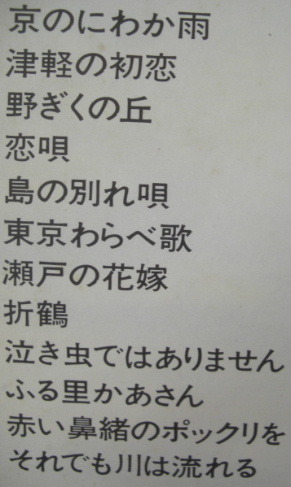 京のにわか雨
津軽の初恋
野ぎくの丘
恋唄
島の別れ唄
東京わらべ歌
瀬戸の花嫁
折鶴
泣き虫ではありません
ふる里かあさん
赤い鼻緒のポックリを
それでも川は流れる